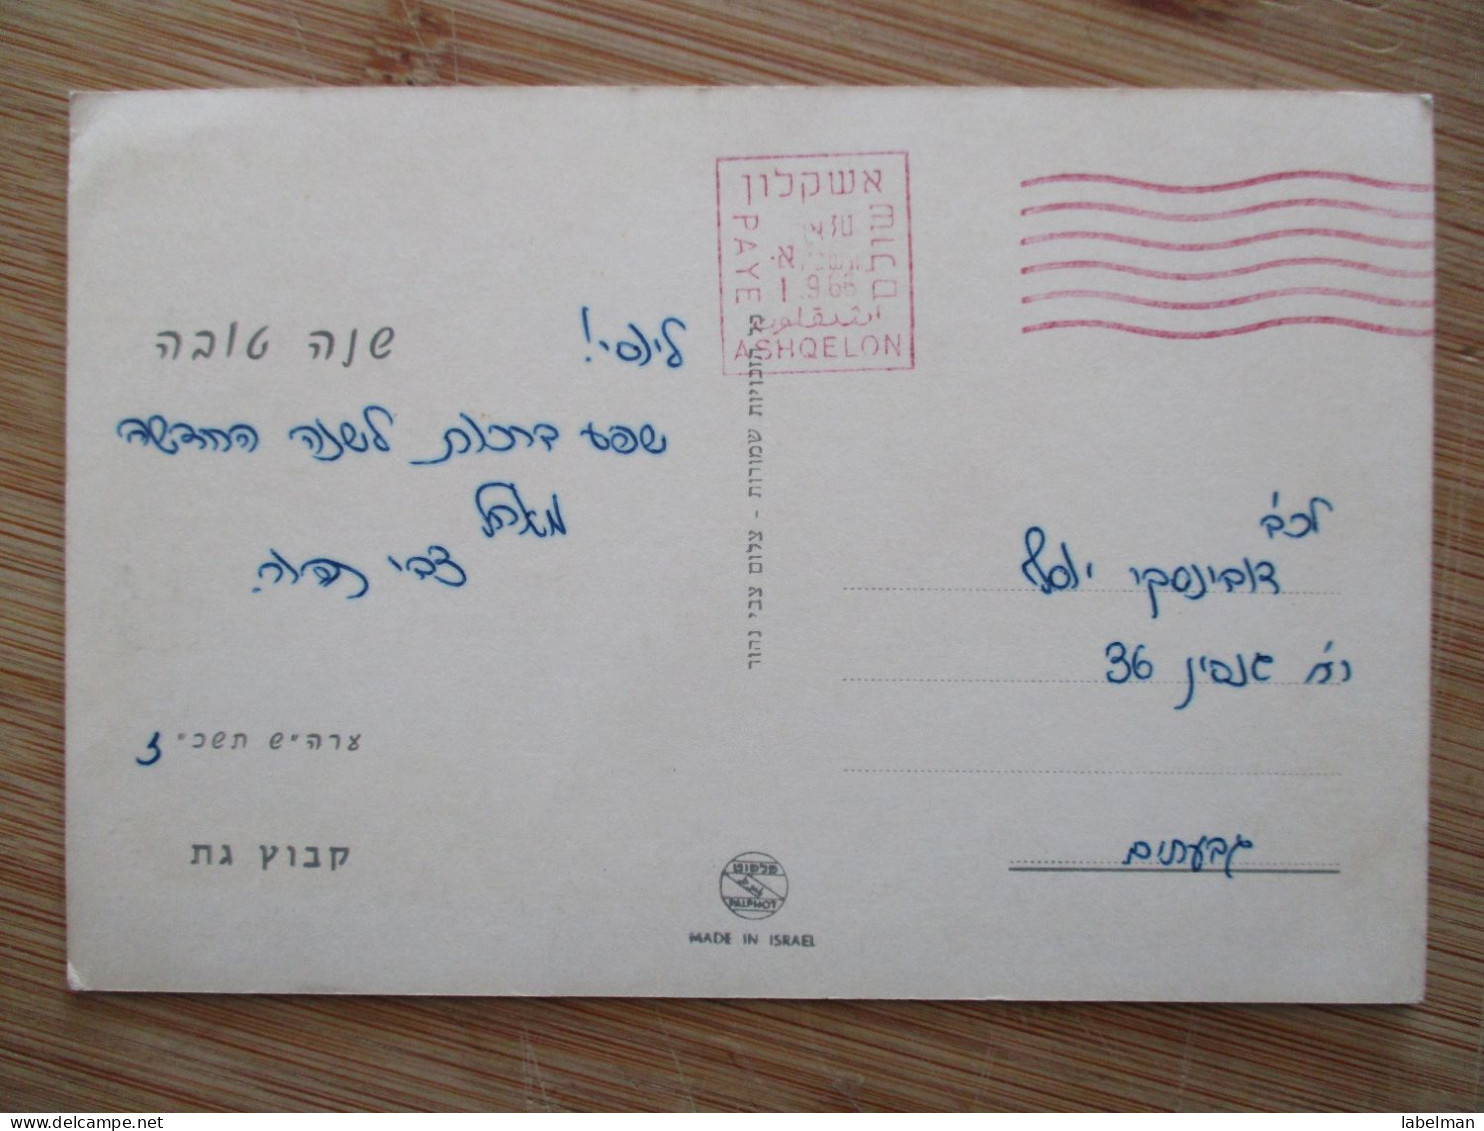 שנה טובה
לינסי!
שפע ברכות לשנה החדשה
מאחל
צבי
ערה"ש תשכ"ז
קבוץ גת
אשקלון
שולם
PAYE
1.9.66
اشقلون
ASHQELON
כל הזכויות שמורות - צלום צבי נהור
פלפוט
PALPHOT
MADE IN ISRAEL
לכב'
דובינסקי יוסף
רח' 36
גבעתיים
labelman
delcampe.net